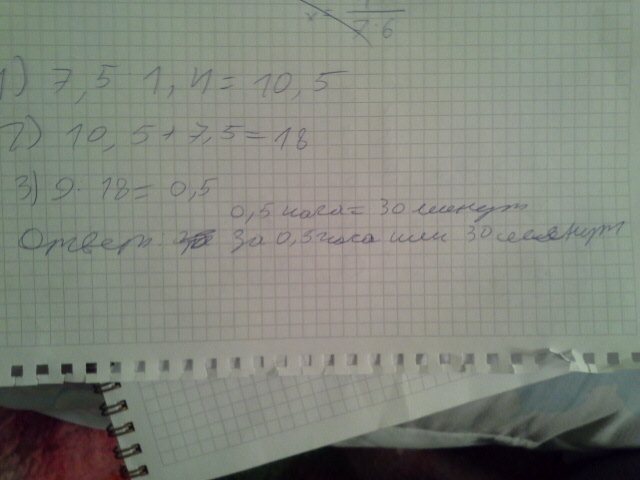 x = 1/(7·6)
1) 7,5 1,4 = 10,5
2) 10,5+7,5=18
3) 9·18= 0,5
0,5 часа= 30 минут
Ответ: за 0,5 часа или 30 минут